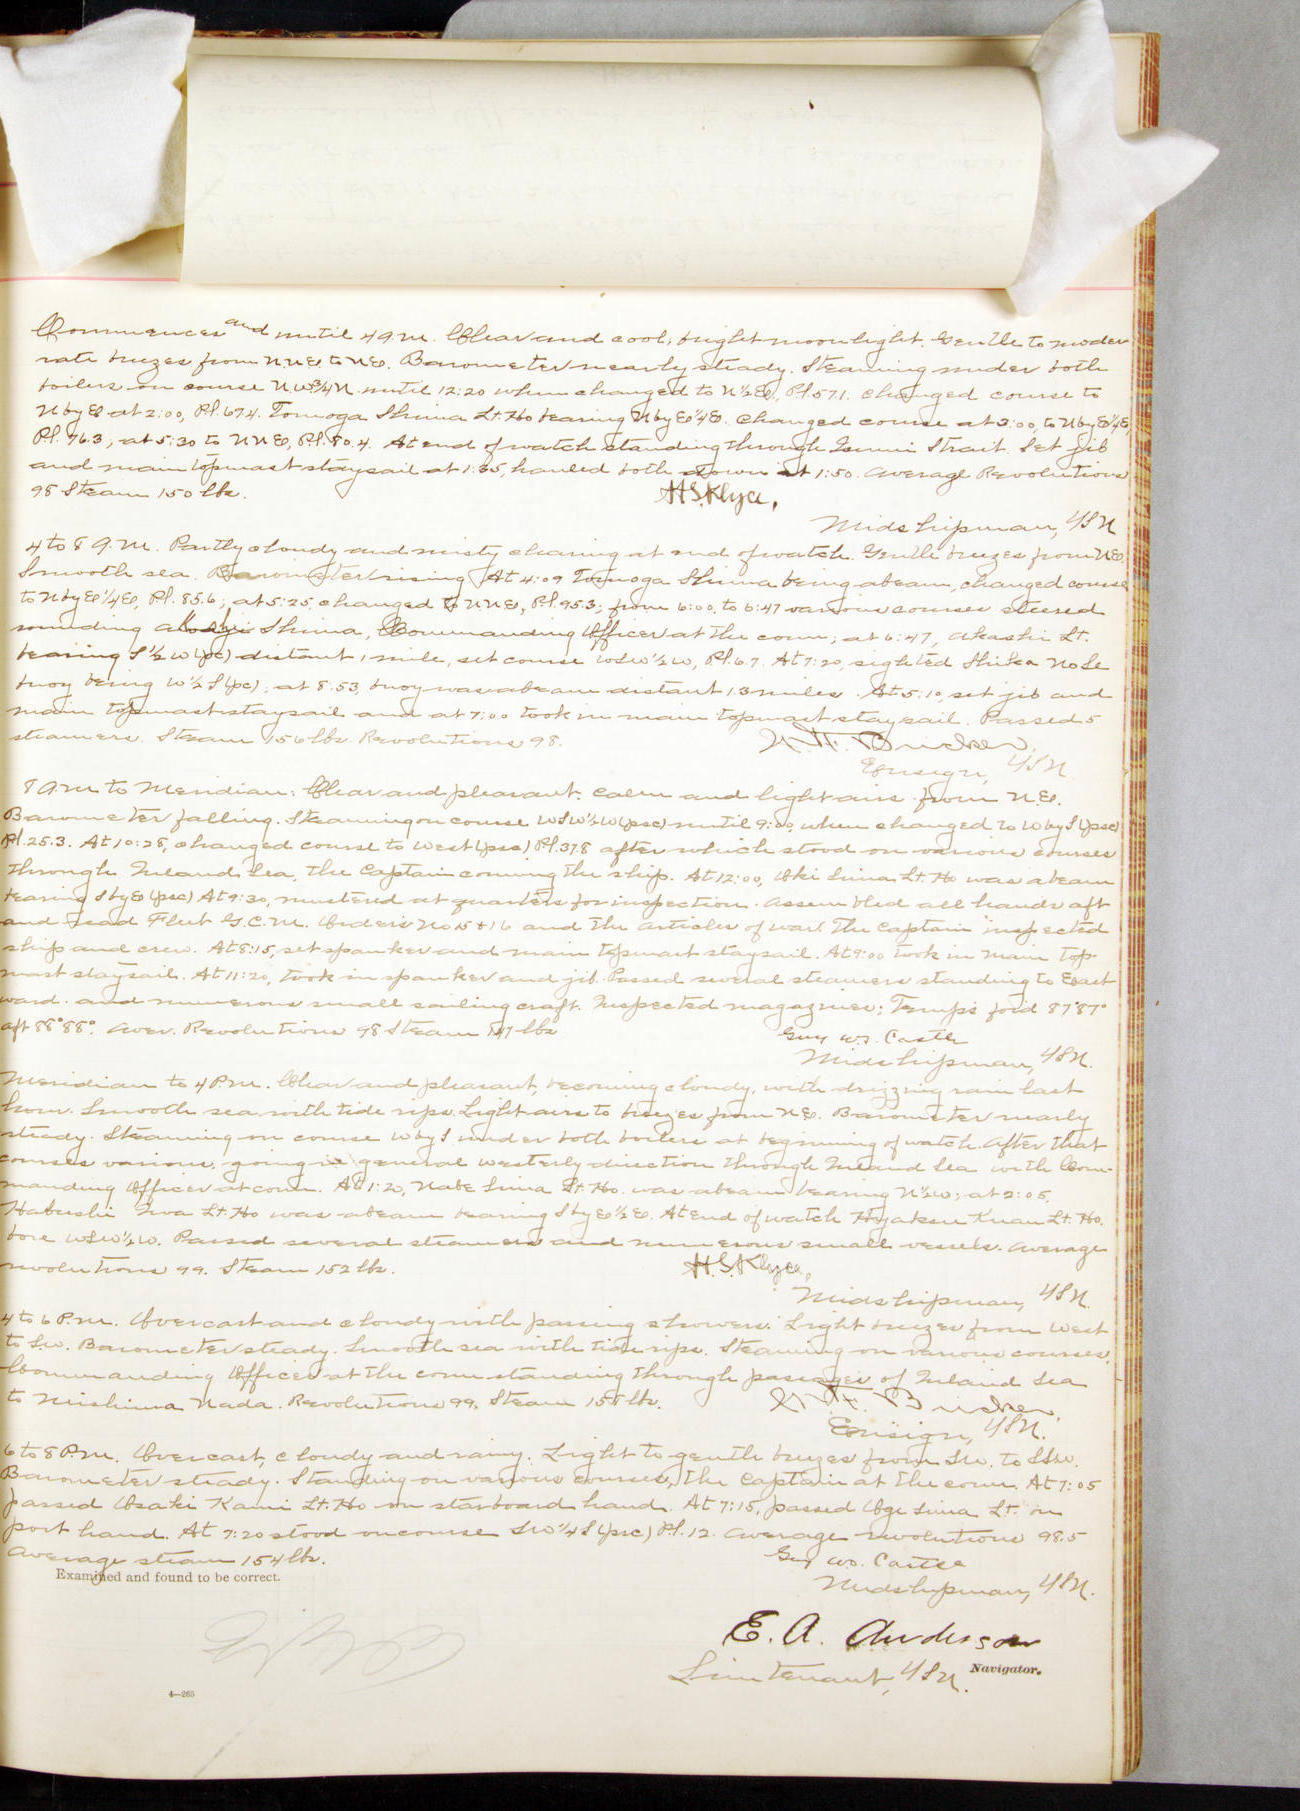 Commences and until 4 a.m. Clear and cool, bright moonlight. Gentle to mode-
rate breezes from NNE to NE. Barometer nearly steady. Steaming under both
boilers on course NW3/4N until 12:20 when changed to N½E, P.l. 57.1. changed course to
N by E at 2:00, P.l. 67.4. Tomoga Shima Lt. Ho bearing N by E¼E. changed course at 3:00, to N by E¼E,
P.l. 76.3, at 3:30 to NNE, P.l. 80.4. At end of watch standing through Strait. Set jib
and main topmast staysail at 1:35, hauled both down at 1:50. Average Revolutions
98 Steam 150 lbs.
H.S. Klyce,
Midshipman, USN
4 to 8 A.M. Partly cloudy and misty clearing at end of watch. Gentle breezes from NE.
Smooth sea. Barometer rising. At 4:09 Tomoga Shima being abeam, changed course
to N by E¼E, P.l. 85.6; at 5:25, changed to NNE, P.l. 95.3; from 6:00, to 6:47 various courses steered
rounding Shima, Commanding Officer at the conn; at 6:47, Akashi Lt.
bearing S½W (psc) distant 1 mile, set course WSW½W, P.l. 6.7. At 7:20, sighted Shika No Se
buoy being W½S (psc); at 8:53, buoy was abeam distant 1.3 miles. At 5:10, set jib and
main topmast staysail and at 7:00 took in main topmast staysail. Passed 5
steamers. Steam 156 lbs. Revolutions 98.
Bricker,
Ensign, USN
8 A.M. to Meridian: Clear and pleasant. Calm and light airs from NE.
Barometer falling. Steaming on course WSW½W (psc) until 9:00, when changed to W by S (psc)
P.l. 25.3. At 10:28, changed course to West (psc) P.l. 37.8 after which stood on various courses
through Inland Sea, the Captain conning the ship. At 12:00, Oki Sima Lt. Ho was abeam
bearing S by E (psc) At 9:30, mustered at quarters for inspection. Assembled all hands aft
and read Fleet G.C.M. Orders No 15 & 16 and the articles of war. The Captain inspected
ship and crew. At 8:15, set spanker and main topmast staysail. At 9:00 took in main top-
mast staysail. At 11:20, took in spanker and jib. Passed several steamers standing to East
ward. and numerous small sailing craft. Inspected magazines: Temps for'd 87° 87°
aft 88° 88°. Aver. Revolutions 98 Steam 147 lbs
Guy W.S. Castle
Midshipman, USN.
Meridian to 4 P.M. Clear and pleasant, becoming cloudy, with drizzling rain last
hour. Smooth sea with tide rips. Light airs to breezes from NE. Barometer nearly
steady. Steaming on course W by S under both boilers at beginning of watch. After that
courses various, going in general westerly direction through Inland Sea with Com-
manding Officer at conn. At 1:20, Nabe Sima Lt. Ho. was abeam bearing N½W; at 2:05,
Habushi Iwa Lt. Ho was abeam bearing S by E½E. At end of watch Hyaken Kuan Lt. Ho.
bore WSW½W. Passed several steamers and numerous small vessels. Average
revolutions 99. Steam 152 lbs.
H.S. Klyce,
Midshipman, USN.
4 to 6 P.M. Overcast and cloudy with passing showers. Light breezes from West
to SW. Barometer steady. Smooth sea with tide rips. Steaming on various courses,
Commanding Officer at the conn standing through passages of Inland Sea
to Mishima Nada. Revolutions 99. Steam 158 lbs.
Bricker,
Ensign, USN.
6 to 8 P.M. Overcast, cloudy and rainy. Light to gentle breezes from SW. to SSW.
Barometer steady. Standing on various courses, the Captain at the conn. At 7:05
passed Osaki Kami Lt. Ho on starboard hand. At 7:15, passed Oge Sima Lt. on
port hand. At 7:20 stood on course SW¼S (psc) P.l. 12. Average revolutions 98.5
Average steam 154 lbs.
Guy W.S. Castle
Midshipman, USN.
Examined and found to be correct.
E. A. Anderson
Lieutenant, USN.
Navigator.
4—265